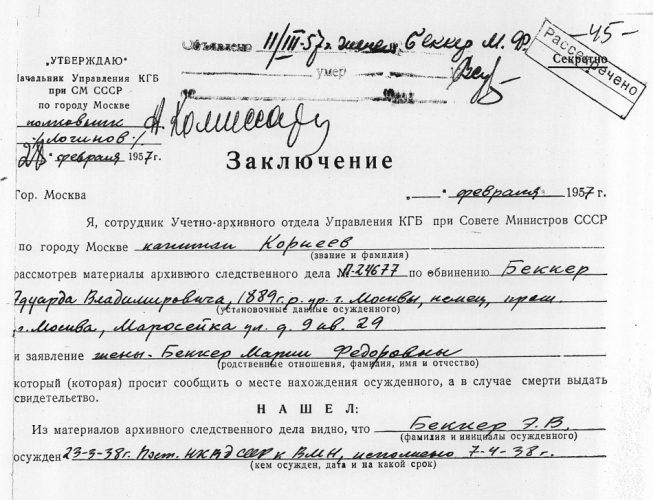 Объявлено 11/III-57г. жене Беккер М. Ф.
-45-
Рассекречено
Секретно
умер
„УТВЕРЖДАЮ"
Начальник Управления КГБ
при СМ СССР
по городу Москве
полковник
/Логинов/
28 февраля 1957г.
Заключение
Гор. Москва
„—" февраля 1957г.
Я, сотрудник Учетно-архивного отдела Управления КГБ при Совете Министров СССР
по городу Москве капитан Корнеев
(звание и фамилия)
рассмотрев материалы архивного следственного дела № П-24677 по обвинению Беккер
Эдуарда Владимировича, 1889г.р. ур. г. Москвы, немец, прож.
(установочные данные осужденного)
г. Москва, Маросейка ул. д. 9 кв. 29
и заявление жены - Беккер Марии Федоровны
(родственные отношения, фамилия, имя и отчество)
который (которая) просит сообщить о месте нахождения осужденного, а в случае смерти выдать
свидетельство.
НАШЕЛ:
Из материалов архивного следственного дела видно, что Беккер Э. В.
(фамилия и инициалы осужденного)
осужден 23-3-38г. Пост. НКВД СССР к ВМН, исполнено 7-4-38г.
(кем осужден, дата и на какой срок)